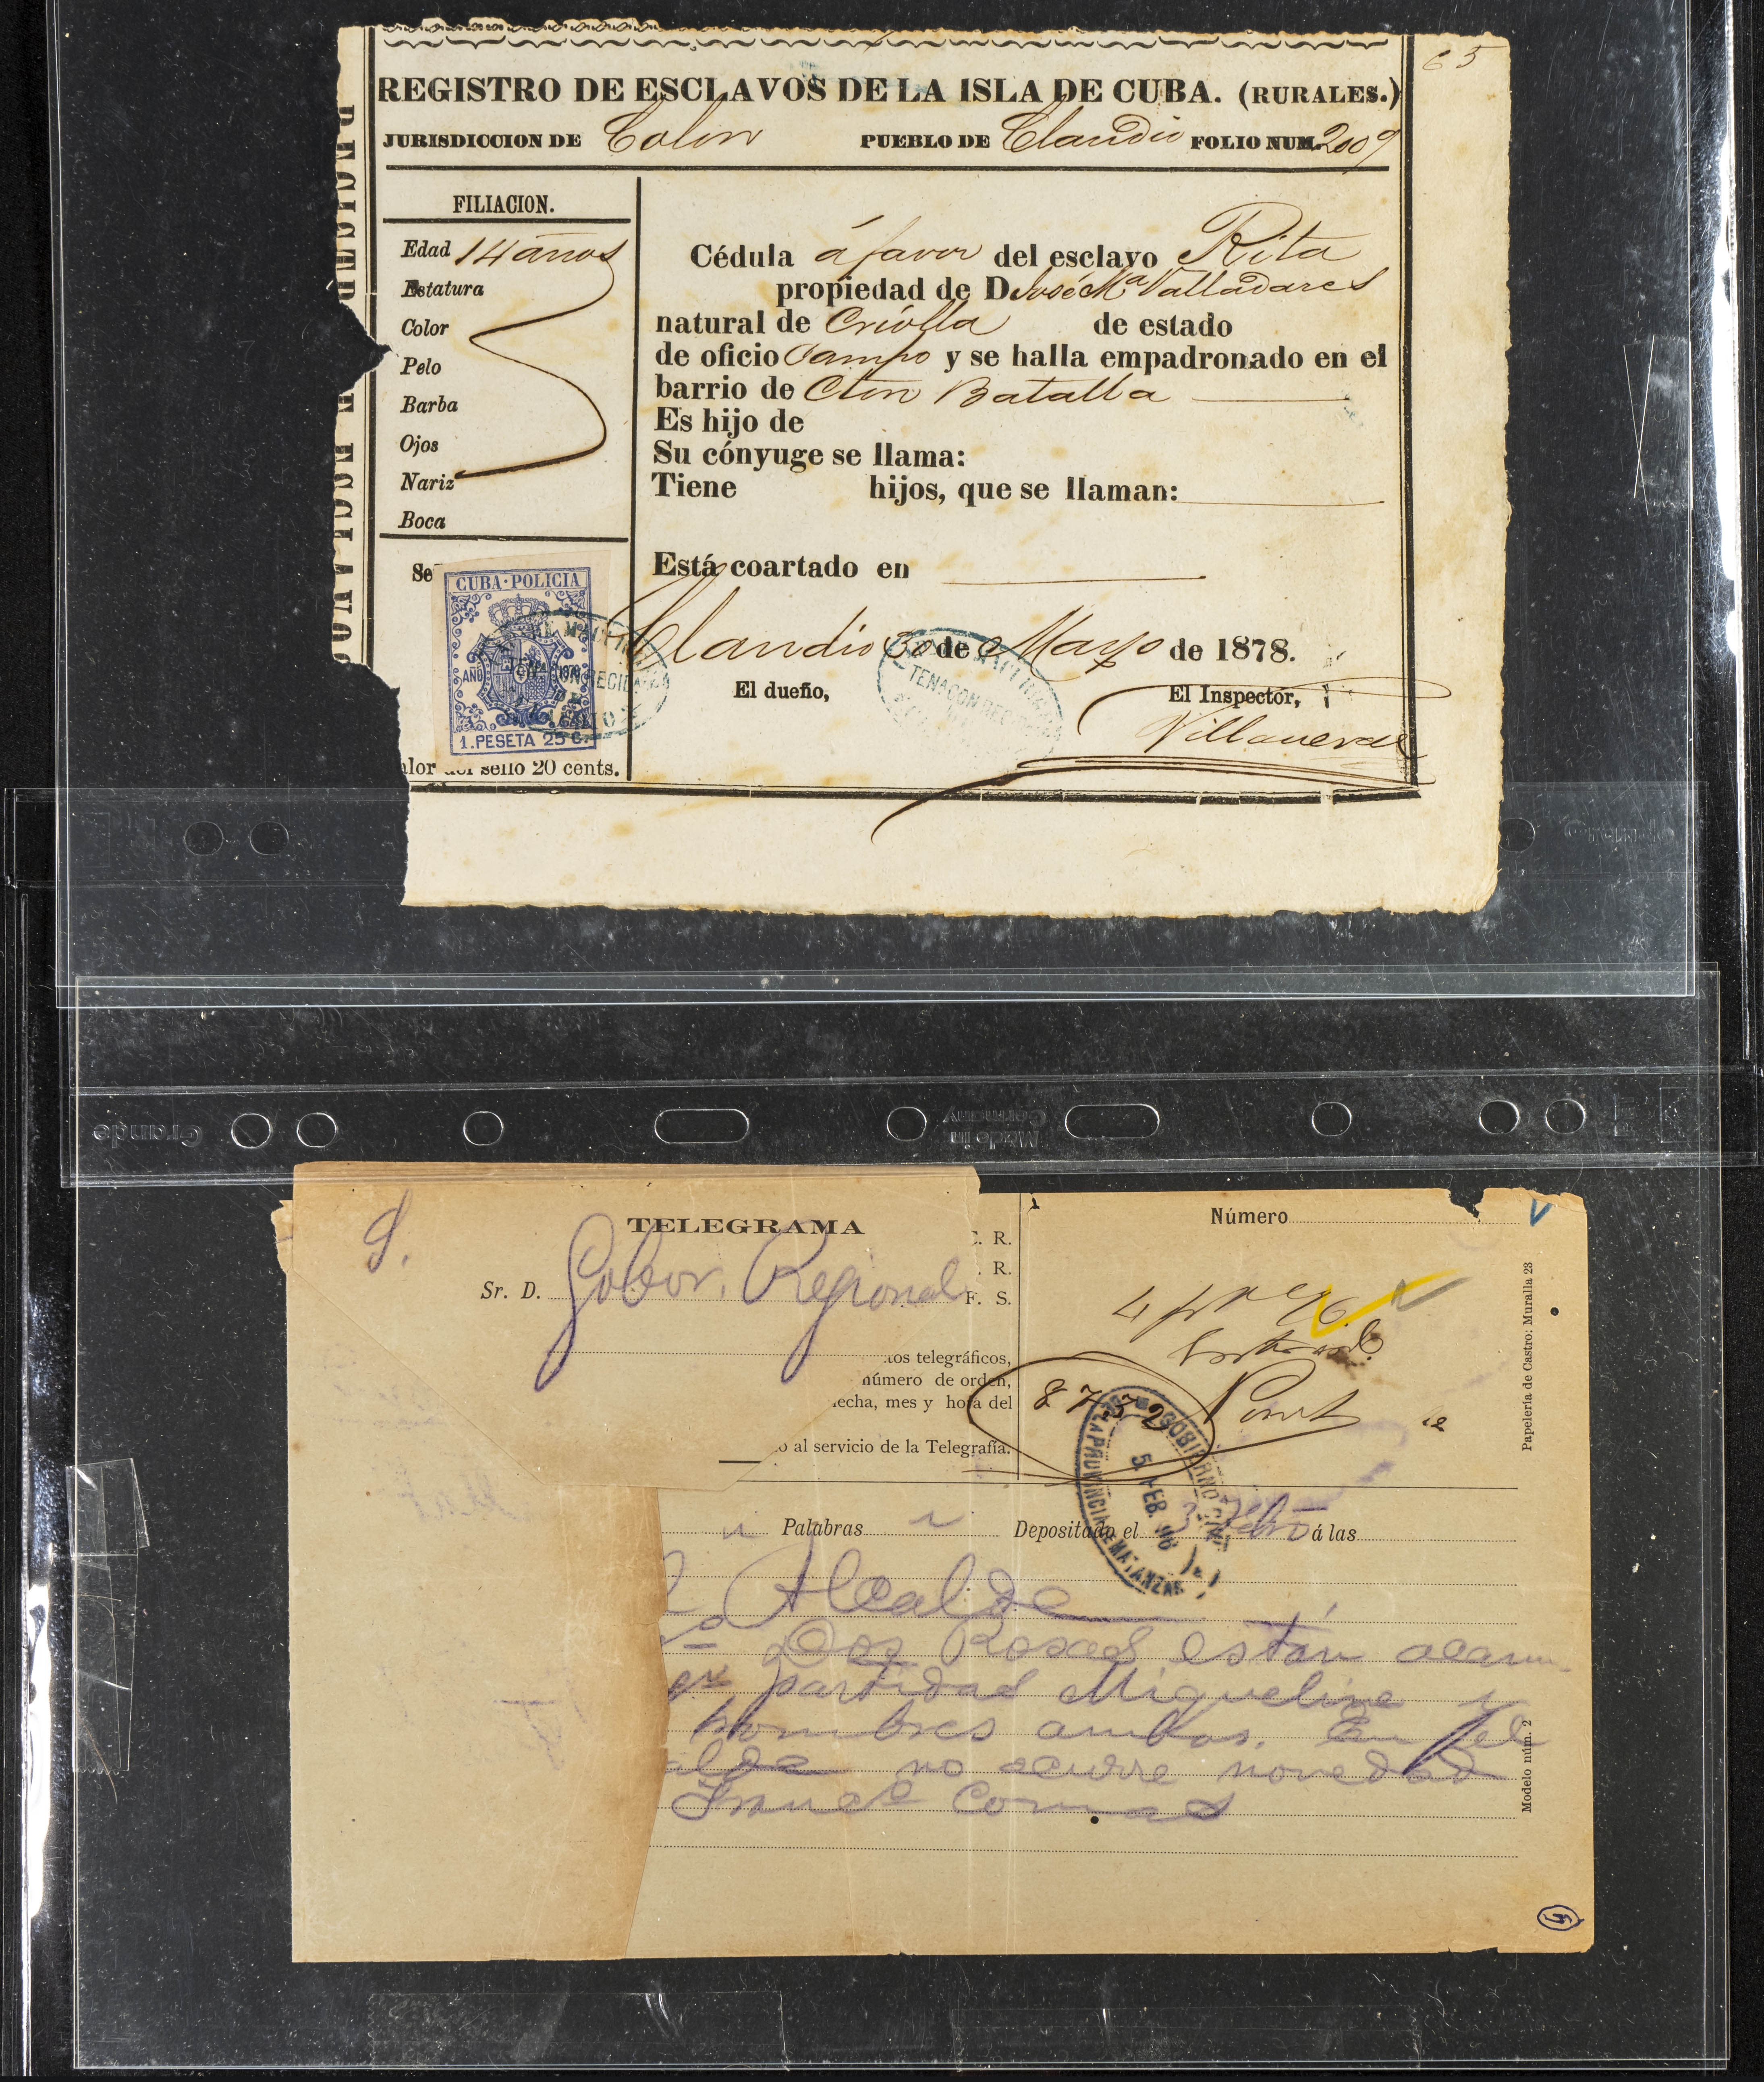 65
REGISTRO DE ESCLAVOS DE LA ISLA DE CUBA. (RURALES.)
JURISDICCION DE Colon PUEBLO DE Claudio FOLIO NUM. 2009
FILIACION.
Edad 14 años
Estatura
Color
Pelo
Barba
Ojos
Nariz
Boca
Se
CUBA·POLICIA
AÑO 1878
1. PESETA 25 C.
alor del sello 20 cents.
Cédula á favor del esclavo Rita
propiedad de D. José Ma Valladares
natural de Criolla de estado
de oficio Campo y se halla empadronado en el
barrio de Cton Batalla
Es hijo de
Su cónyuge se llama:
Tiene hijos, que se llaman:
Está coartado en
Claudio 30 de Mayo de 1878.
El dueño, El Inspector,
Villanueva
Grande
Made in
Germany
TELEGRAMA
S.
Sr. D. Gobor. Regional
C. R.
. R.
F. S.
tos telegráficos,
número de orden,
fecha, mes y hora del
o al servicio de la Telegrafía.
Número
8752
GOBIERNO
DE LA PROVINCIA DE MATANZAS
5 FEB. 96
Palabras Depositado el 3 Febro á las
Alcalde
Dos Rosas están acam
partidas Miquelina y
hombres ambos. En el
no ocurre novedad
Comas
Papelería de Castro: Muralla 23
Modelo núm. 2